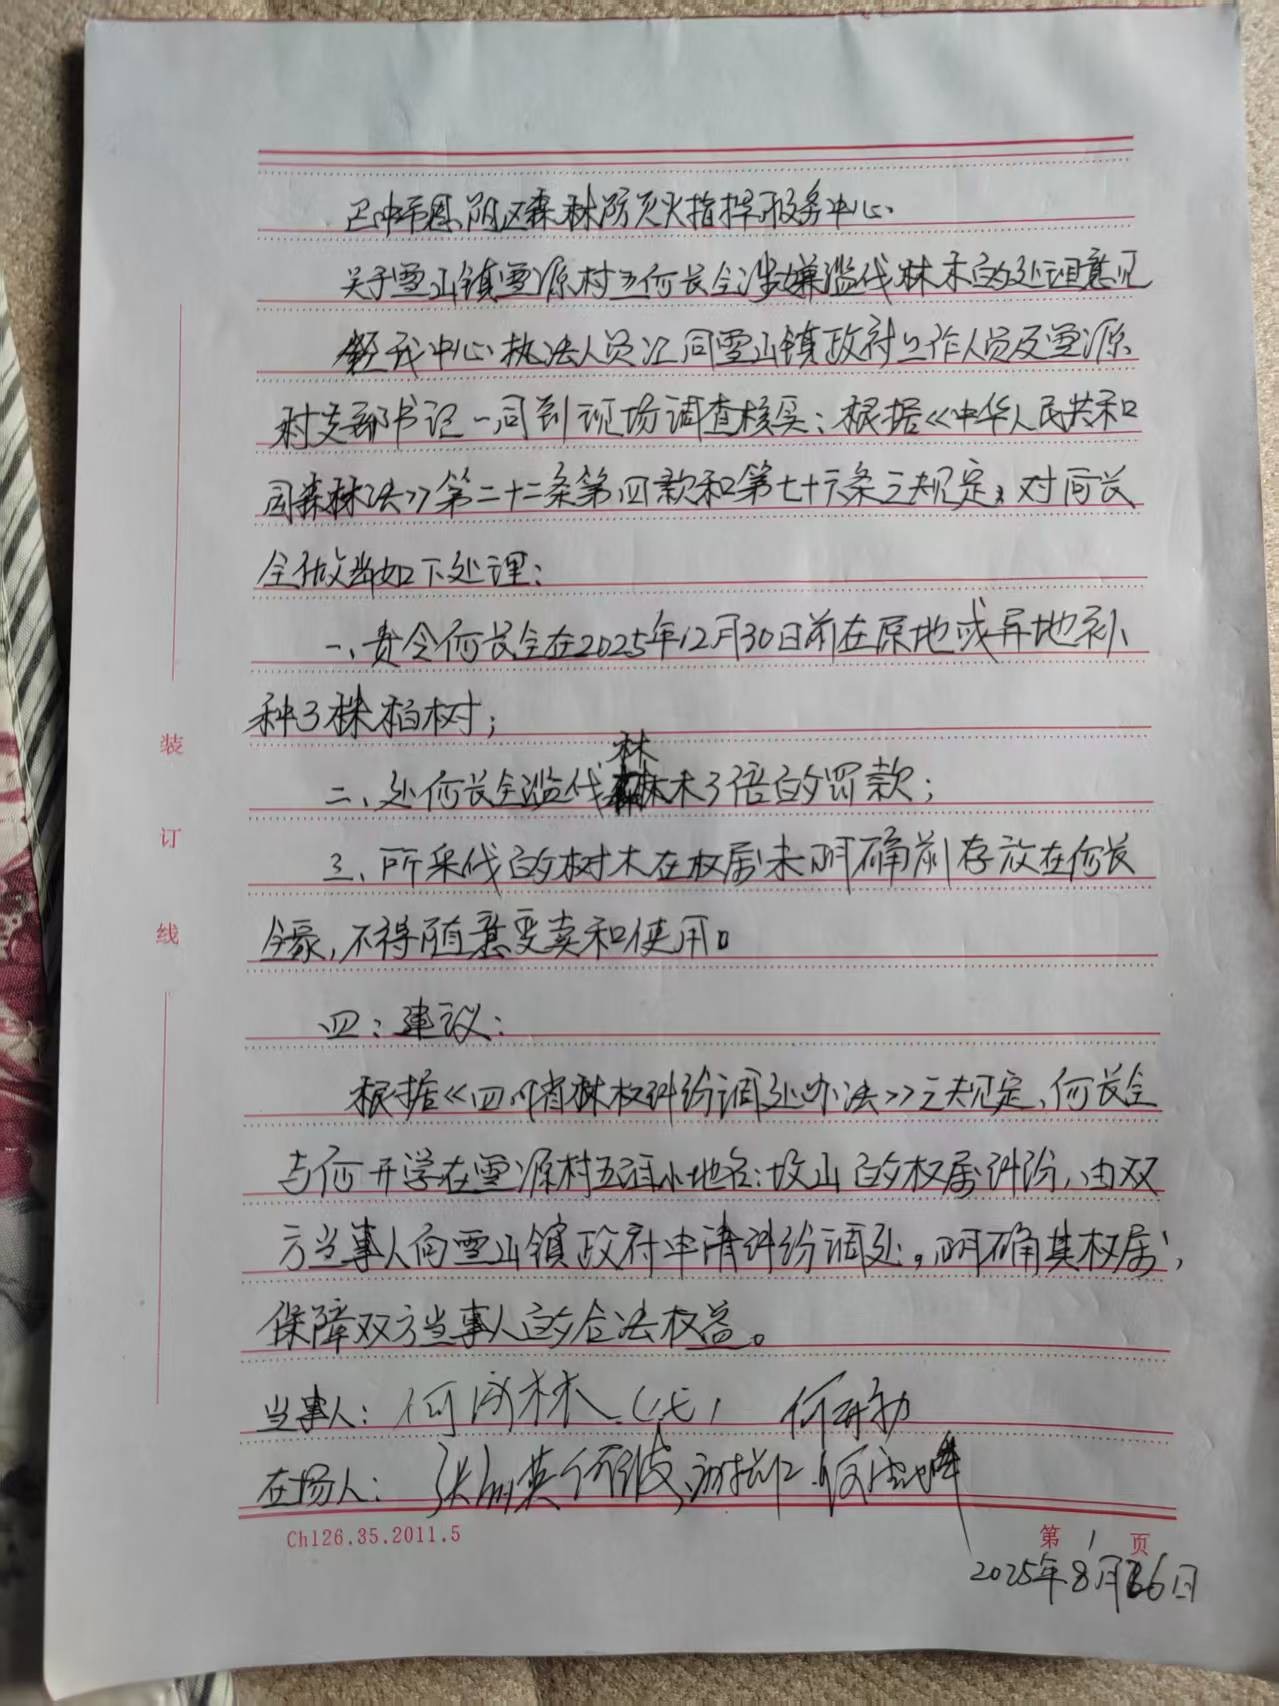 巴中市恩阳区森林防灭火指挥服务中心
关于雪山镇雪源村五何长全涉嫌滥伐林木的处理意见
经我中心执法人员汇同雪山镇政府工作人员及雪源
村支部书记一同到现场调查核实：根据《中华人民共和
国森林法》第二十二条第四款和第七十六条之规定，对何长
全做出如下处理：
一、责令何长全在2025年12月30日前在原地或异地补
种3株柏树；
二、处何长全滥伐林木3倍的罚款；
三、所采伐的树木在权属未明确前存放在何长
全家，不得随意变卖和使用。
四：建议：
根据《四川省林权纠纷调处办法》之规定、何长全
与何开学在雪源村五组小地名：坟山的权属纠纷，由双
方当事人向雪山镇政府申请纠纷调处。明确其权属，
保障双方当事人的合法权益。
当事人：何 林（代）何
在场人：张 英 何波
装
订
线
Ch126.35.2011.5
第 1 页
2025年8月6日